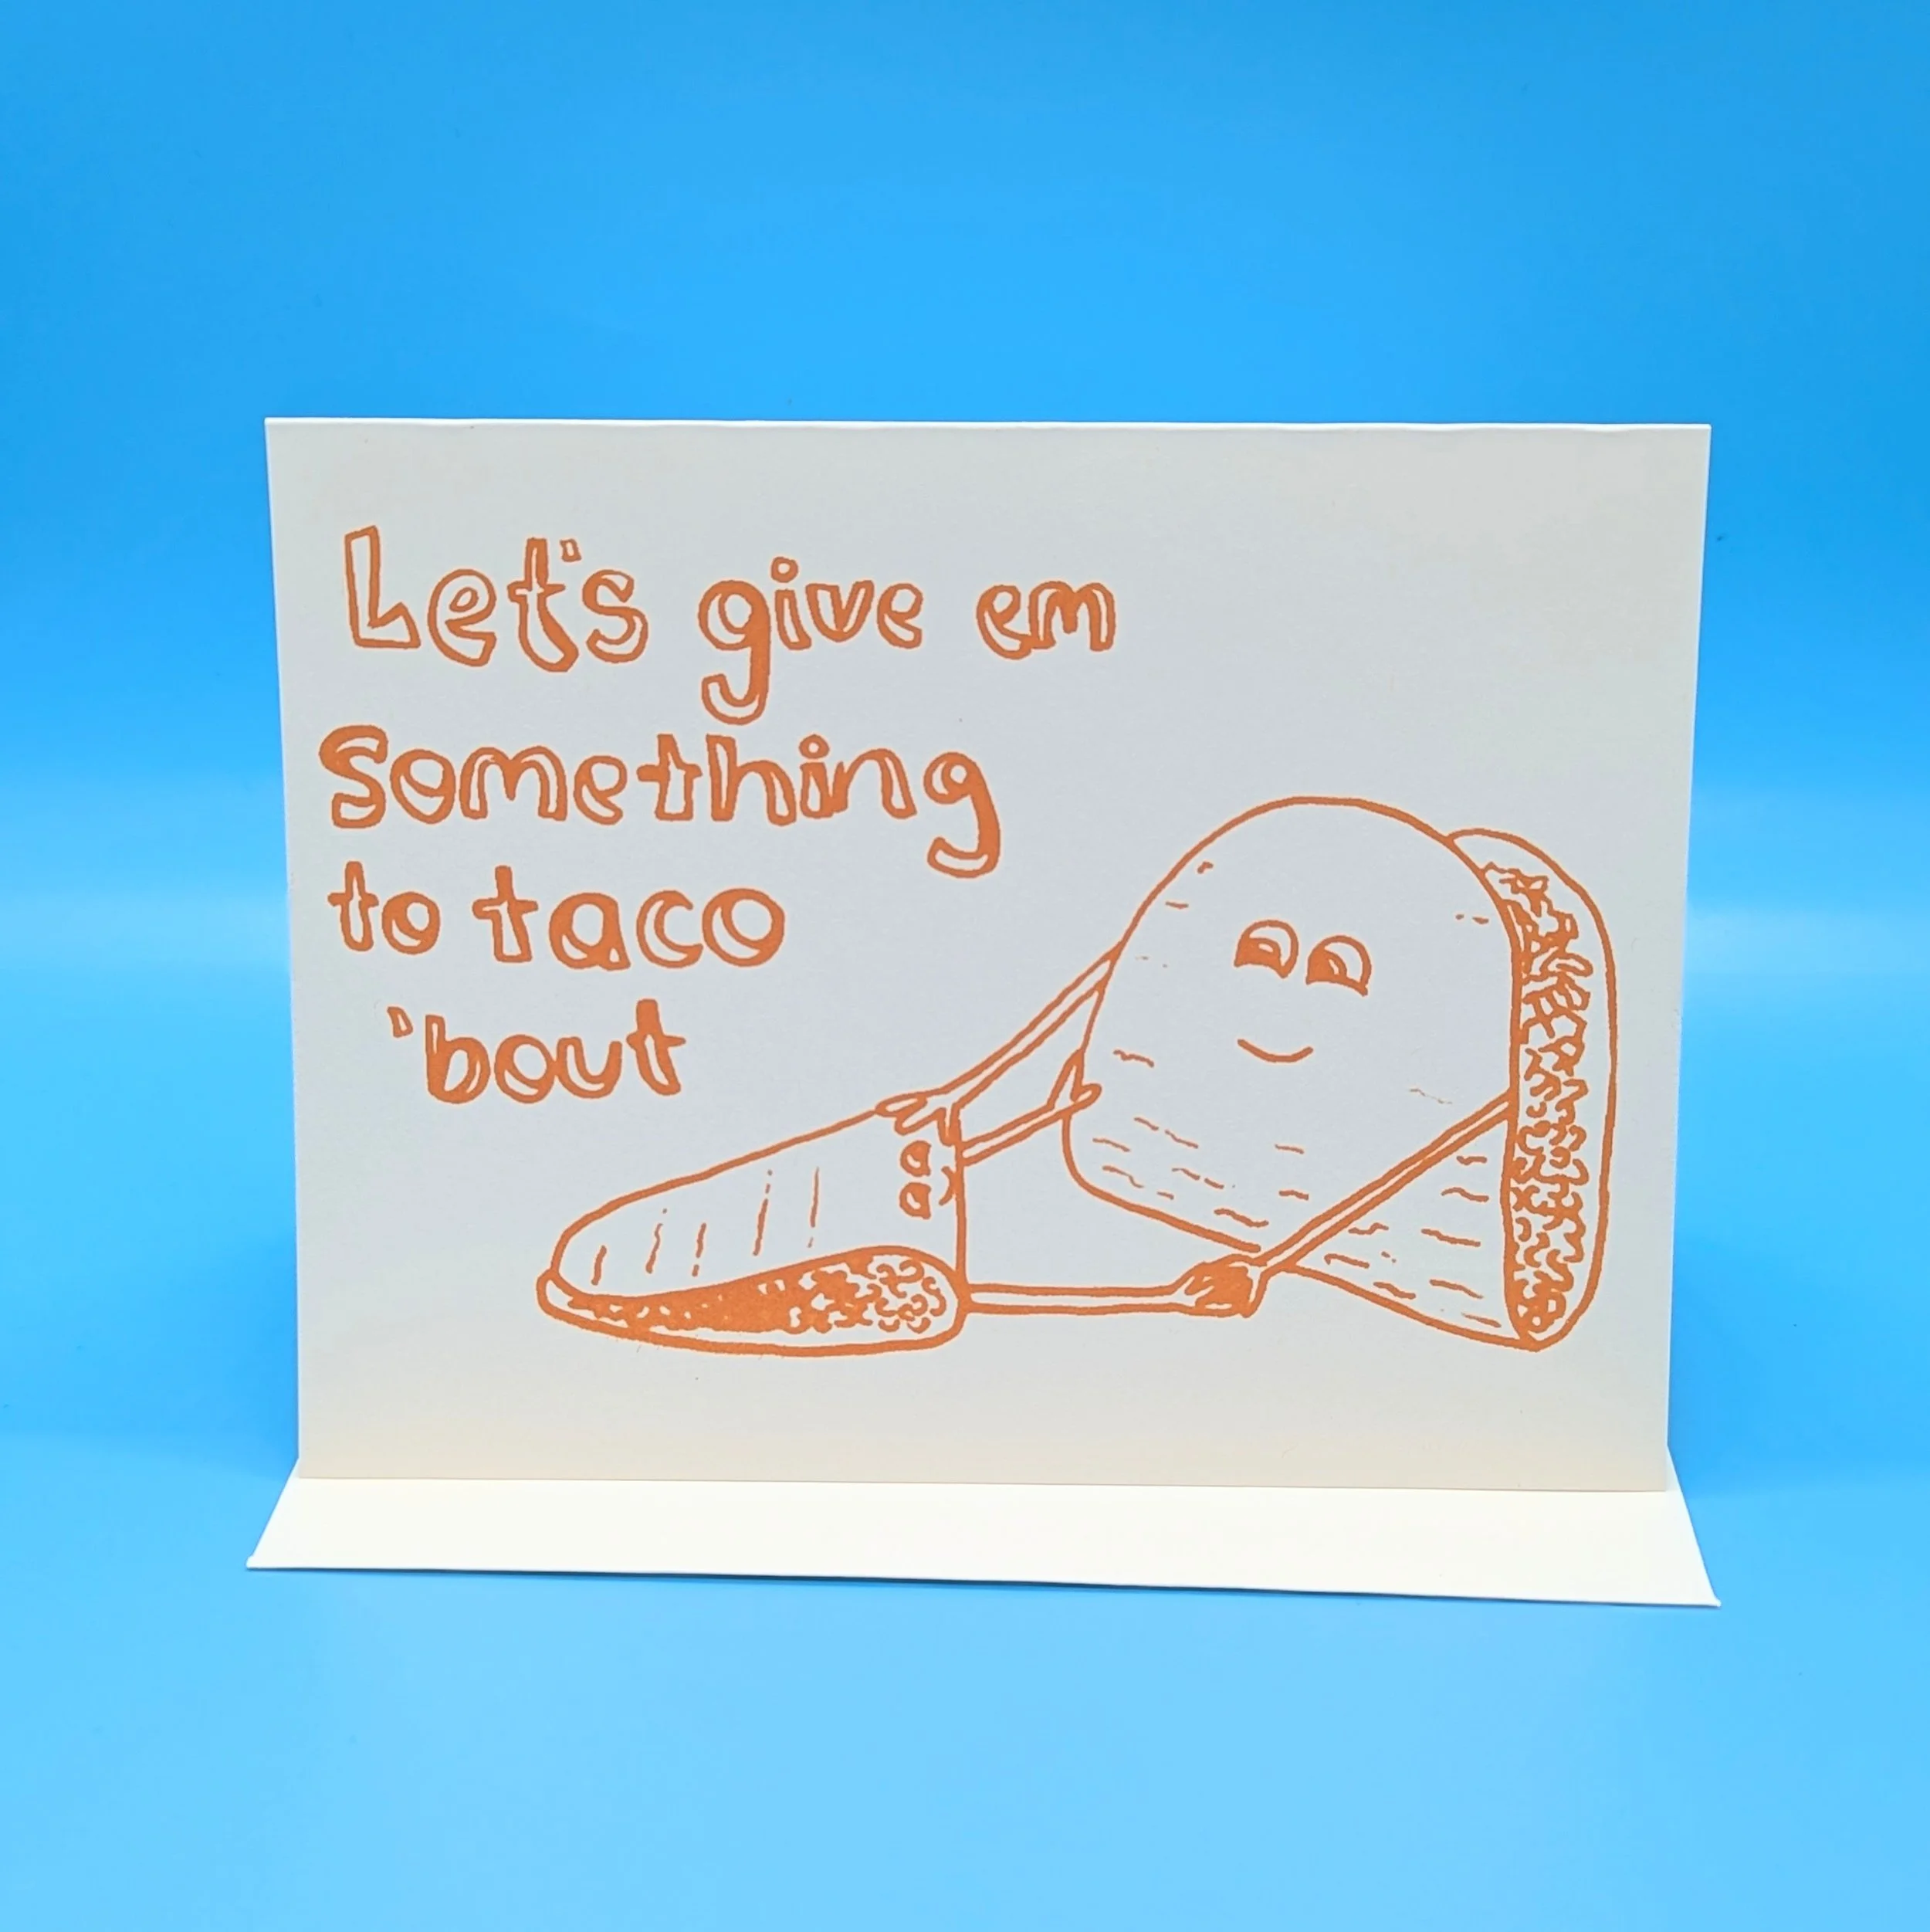 Let's give em
Something
to taco
'bout